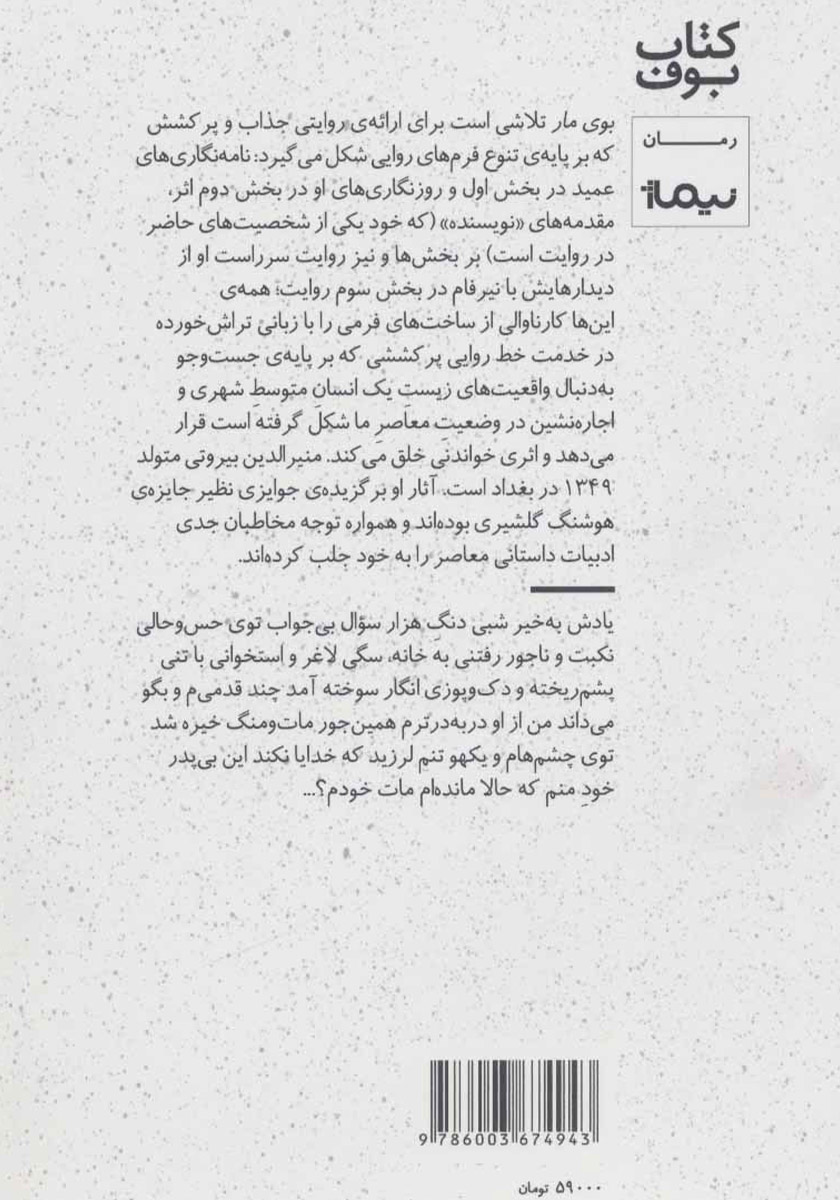 کتاب
بوف
رمــــان
نیماژ
بوی مار تلاشی است برای ارائه‌ی روایتی جذاب و پرکشش
که بر پایه‌ی تنوع فرم‌های روایی شکل می‌گیرد: نامه‌نگاری‌های
عمید در بخش اول و روزنگاری‌های او در بخش دوم اثر،
مقدمه‌های «نویسنده» (که خود یکی از شخصیت‌های حاضر
در روایت است) بر بخش‌ها و نیز روایت سرراست او از
دیدارهایش با نیرفام در بخش سوم روایت؛ همه‌ی
این‌ها کارناوالی از ساخت‌های فرمی را با زبانی تراش‌خورده
در خدمت خط روایی پرکششی که بر پایه‌ی جست‌وجو
به‌دنبال واقعیت‌های زیستِ یک انسانِ متوسطِ شهری و
اجاره‌نشین در وضعیتِ معاصرِ ما شکل گرفته است قرار
می‌دهد و اثری خواندنی خلق می‌کند. منیرالدین بیروتی متولد
۱۳۴۹ در بغداد است. آثار او برگزیده‌ی جوایزی نظیر جایزه‌ی
هوشنگ گلشیری بوده‌اند و همواره توجه مخاطبان جدی
ادبیات داستانی معاصر را به خود جلب کرده‌اند.
یادش به‌خیر شبی دنگِ هزار سؤال بی‌جواب توی حس‌وحالی
نکبت و ناجور رفتنی به خانه، سگی لاغر و استخوانی با تنی
پشم‌ریخته و دک‌وپوزی انگار سوخته آمد چند قدمی‌م و بگو
می‌داند من از او دربه‌درترم همین‌جور مات‌ومنگ خیره شد
توی چشم‌هام و یکهو تنم لرزید که خدایا نکند این بی‌پدر
خودِ منم که حالا مانده‌ام مات خودم؟...
9 786003 674943
۵۹۰۰۰ تومان